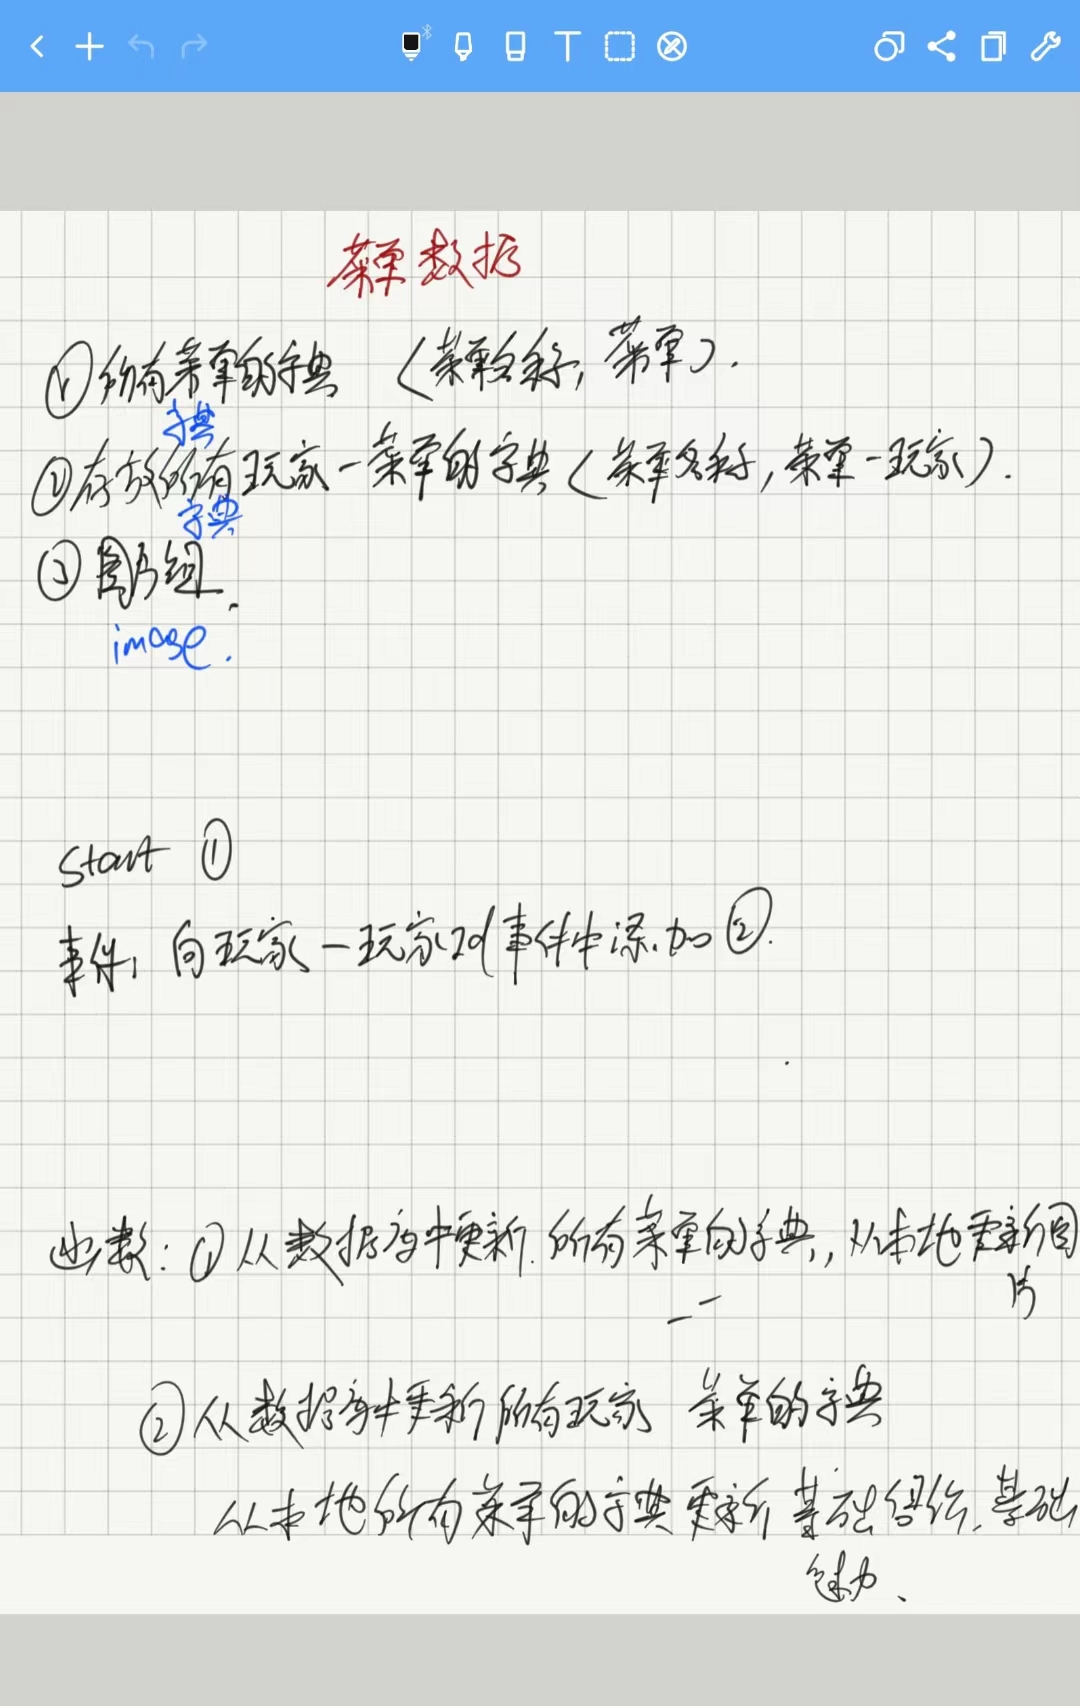 菜单数据
①所有菜单的字典 (菜单名称, 菜单).
字典
②存放所有玩家-菜单的字典(菜单名称,菜单-玩家).
字典
③图片组.
image.
Start ①
事件: 向玩家-玩家对事件中添加②.
函数: ①从数据库中更新所有菜单的字典,从本地更新图
片
②从数据库中更新所有玩家 菜单的字典
从本地所有菜单的字典更新基础 基础
魅力、